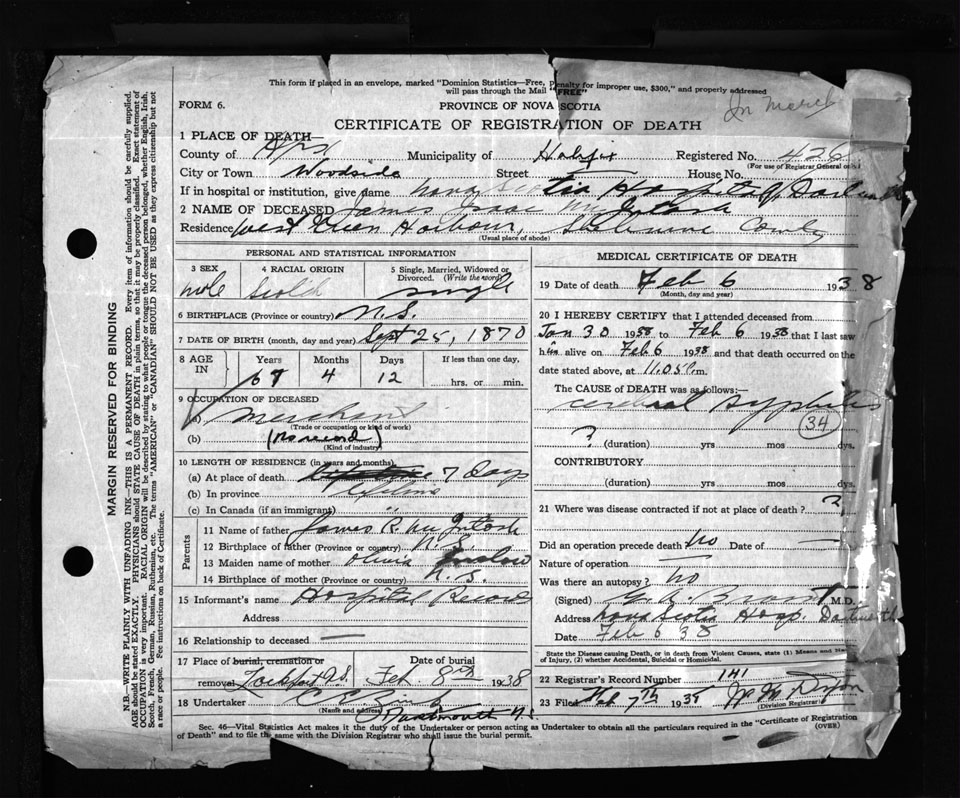 This form if placed in an envelope, marked "Dominion Statistics—Free, Penalty for improper use, $300," and properly addressed
will pass through the Mail "FREE"
In March
FORM 6.
PROVINCE OF NOVA SCOTIA
CERTIFICATE OF REGISTRATION OF DEATH
1 PLACE OF DEATH—
County of Municipality of Halifax Registered No. 426
(For use of Registrar General only)
City or Town Woodside Street House No.
If in hospital or institution, give name Nova Scotia Hospital, Dartmouth
2 NAME OF DECEASED James Isaac McIntosh
Residence West Green Harbour, Shelburne County
(Usual place of abode)
PERSONAL AND STATISTICAL INFORMATION
3 SEX 4 RACIAL ORIGIN 5 Single, Married, Widowed or Divorced. (Write the word)
male Scotch single
6 BIRTHPLACE (Province or country) N.S.
7 DATE OF BIRTH (month, day and year) Sept 25, 1870
8 AGE IN Years Months Days If less than one day,
67 4 12 hrs. or min.
9 OCCUPATION OF DECEASED
(a) Merchant
(Trade or occupation or kind of work)
(b) (No record)
(Kind of industry)
10 LENGTH OF RESIDENCE (in years and months)
(a) At place of death 7 Days
(b) In province lifetime
(c) In Canada (if an immigrant) "
Parents
11 Name of father James R. McIntosh
12 Birthplace of father (Province or country) N.S.
13 Maiden name of mother Olivia
14 Birthplace of mother (Province or country) N.S.
15 Informant's name Hospital Records
Address
16 Relationship to deceased —
17 Place of burial, cremation or removal Lockeport N.S. Date of burial Feb 8th 1938
18 Undertaker
(Name and address) Dartmouth N.S.
MEDICAL CERTIFICATE OF DEATH
19 Date of death Feb 6 1938
(Month, day and year)
20 I HEREBY CERTIFY that I attended deceased from
Jan 30 1938 to Feb 6 1938 that I last saw
him alive on Feb 6 1938 and that death occurred on the
date stated above, at 11.05 P.m.
The CAUSE OF DEATH was as follows:—
cerebral syphilis
34
? (duration) yrs mos dys.
CONTRIBUTORY
(duration) yrs mos dys.
21 Where was disease contracted if not at place of death? ?
Did an operation precede death No Date of —
Nature of operation —
Was there an autopsy? No
(Signed) M.D.
Address Nova Scotia Hosp. Dartmouth
Date Feb 6 38
State the Disease causing Death, or in death from Violent Causes, state (1) Means and
of Injury, (2) whether Accidental, Suicidal or Homicidal.
22 Registrar's Record Number 141
23 Filed Feb 7th 1938
(Division Registrar)
Sec. 46—Vital Statistics Act makes it the duty of the Undertaker or person acting as Undertaker to obtain all the particulars required in the "Certificate of Registration
of Death" and to file the same with the Division Registrar who shall issue the burial permit.
(OVER)
MARGIN RESERVED FOR BINDING
N.B.—WRITE PLAINLY WITH UNFADING INK—THIS IS A PERMANENT RECORD. Every item of information should be carefully supplied.
AGE should be stated EXACTLY. PHYSICIANS should STATE CAUSE OF DEATH in plain terms, so that it may be properly classified. Exact statement of
OCCUPATION is very important. RACIAL ORIGIN will be described by stating to what people or tongue the deceased person belonged, whether English, Irish,
Scotch, French, German, Russian, Ruthenian, etc. The terms "AMERICAN" or "CANADIAN" SHOULD NOT BE USED as they express citizenship but not
a race or people. Fee instructions on back of Certificate.